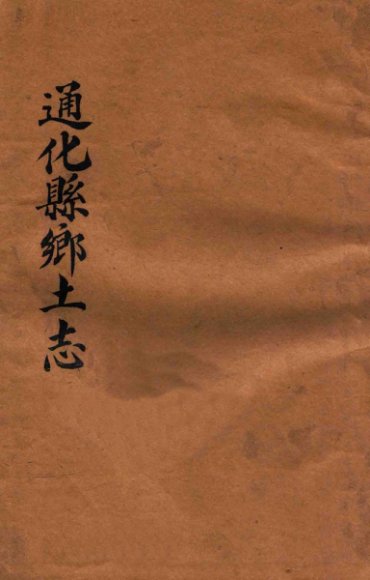 通化縣鄉土志